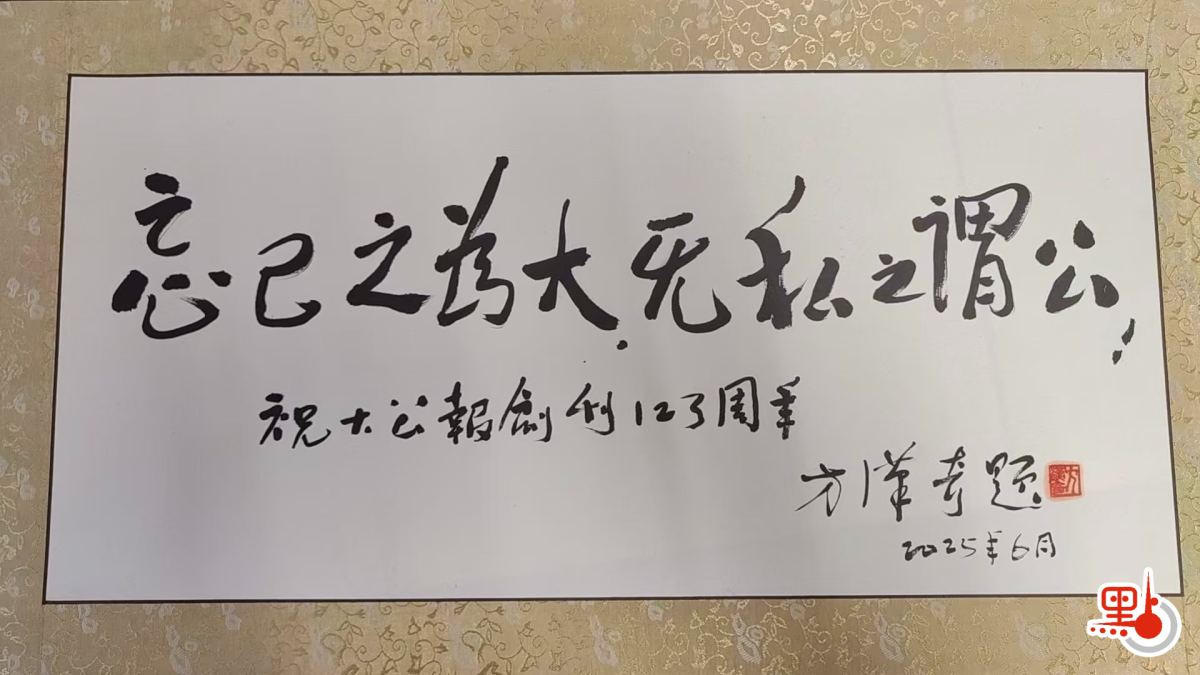 忘己之为大.无私之謂公!
祝大公報創刊123周年
方漢奇题
2025年6月
點